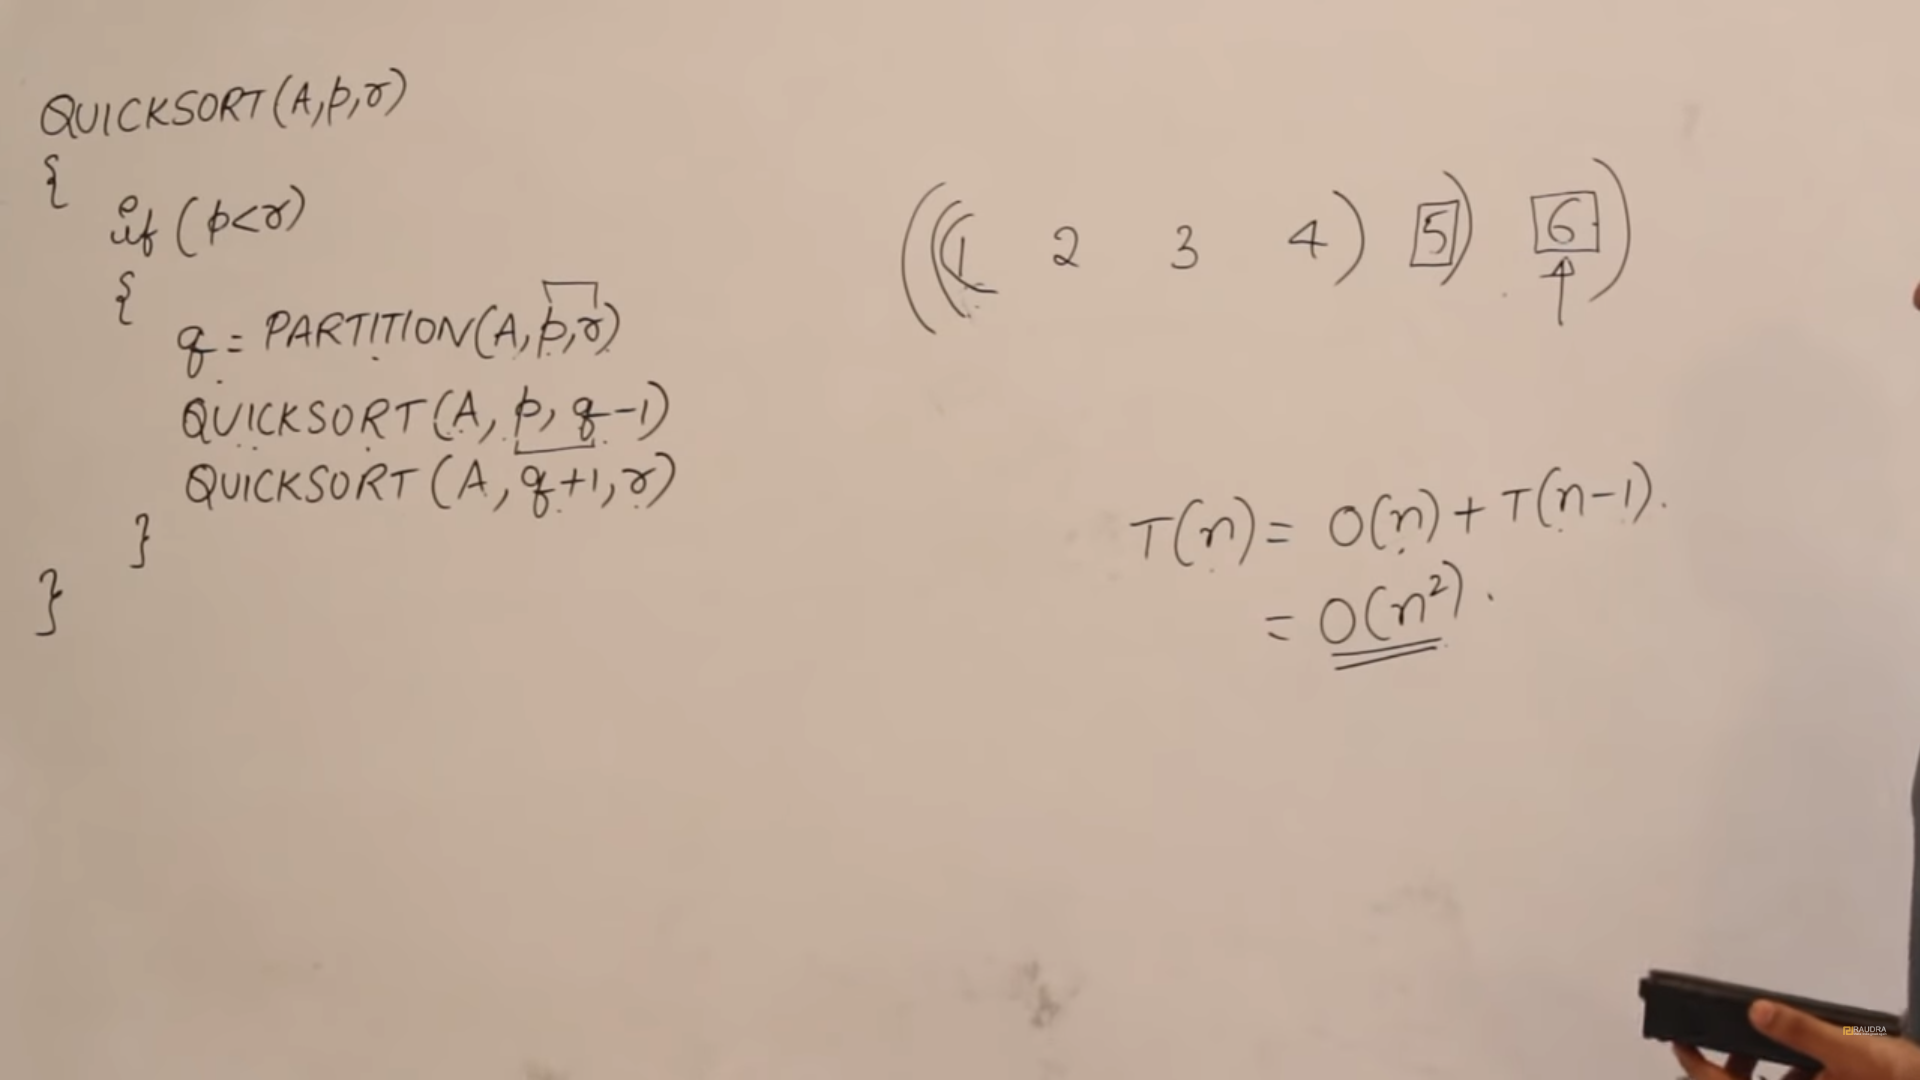 QUICKSORT(A,p,r)
{
if (p<r)
{
q = PARTITION(A,p,r)
QUICKSORT(A, p, q-1)
QUICKSORT(A, q+1, r)
}
}
(((1 2 3 4) 5) 6)
T(n) = O(n) + T(n-1).
= O(n²).
RAUDRA